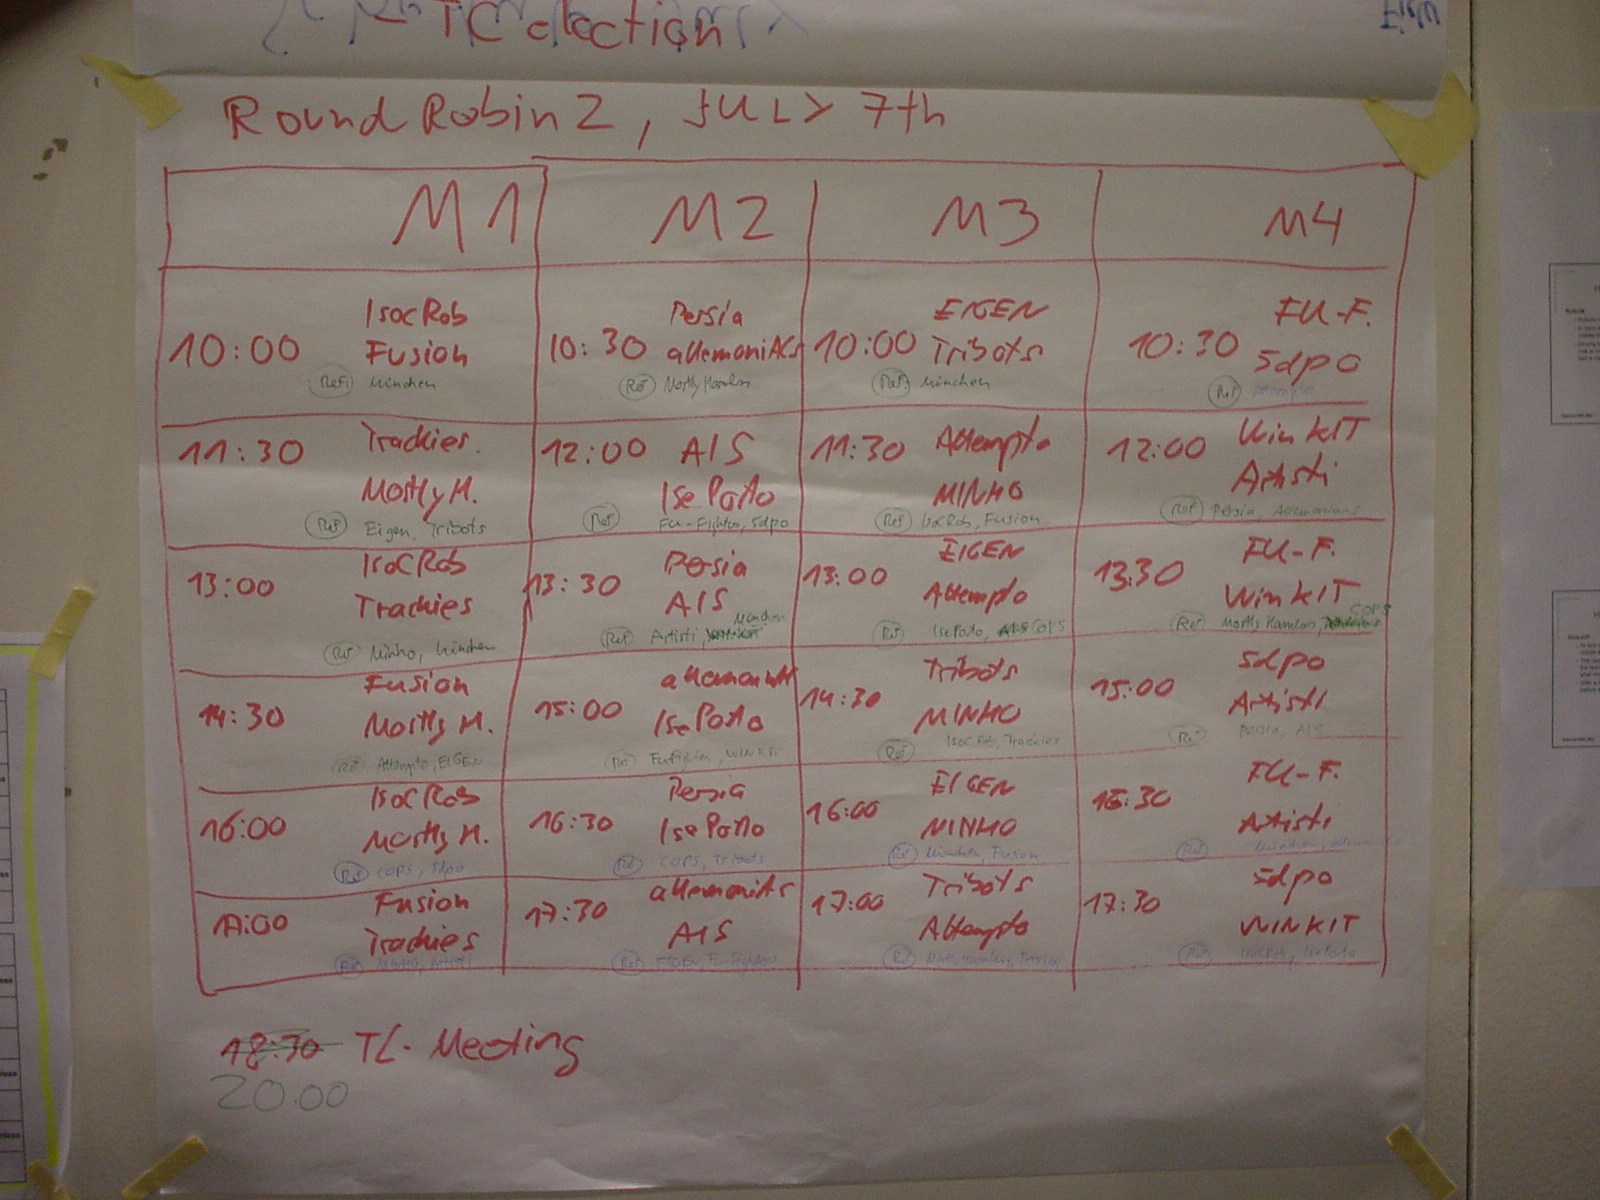 TC election
Round Robin 2, JULY 7th
M1 M2 M3 M4
10:00 IsocRob Fusion
Ref: München
10:30 Persia allemaniACs
Ref Mostly Harmless
10:00 EIGEN Tribots
Ref: München
10:30 FU-F. 5dpo
Ref Attempto
11:30 Trackies. Mostly H.
Ref Eigen, Tribots
12:00 AIS IsePorto
Ref FU-Fighters, 5dpo
11:30 Attempto MINHO
Ref IsocRob, Fusion
12:00 WinKIT Artisti
Ref Persia, Allemaniacs
13:00 IsocRob Trackies
Ref Minho, München
13:30 Persia AIS
Ref Artisti, München
13:00 EIGEN Attempto
Ref IsePorto, COPS
13:30 FU-F. WinKIT
Ref Mostly Harmless, COPS
14:30 Fusion Mostly H.
Ref Attempto, EIGEN
15:00 allemaniACs IsePorto
Ref FuFighters, WINKIT
14:30 Tribots MINHO
Ref IsocRob, Trackies
15:00 5dpo Artisti
Ref Persia, AIS
16:00 IsocRob Mostly H.
Ref COPS, 5dpo
16:30 Persia IsePorto
Ref COPS, Tribots
16:00 EIGEN MINHO
Ref Fusion
16:30 FU-F. Artisti
Ref München,
17:00 Fusion Trackies
Ref Minho, Artisti
17:30 allemaniACs AIS
Ref EIGEN, Fu-Fighters
17:00 Tribots Attempto
Ref Mostly Harmless, Persia
17:30 5dpo WINKIT
Ref IsocRob, IsePorto
18:30 TL-Meeting
20.00